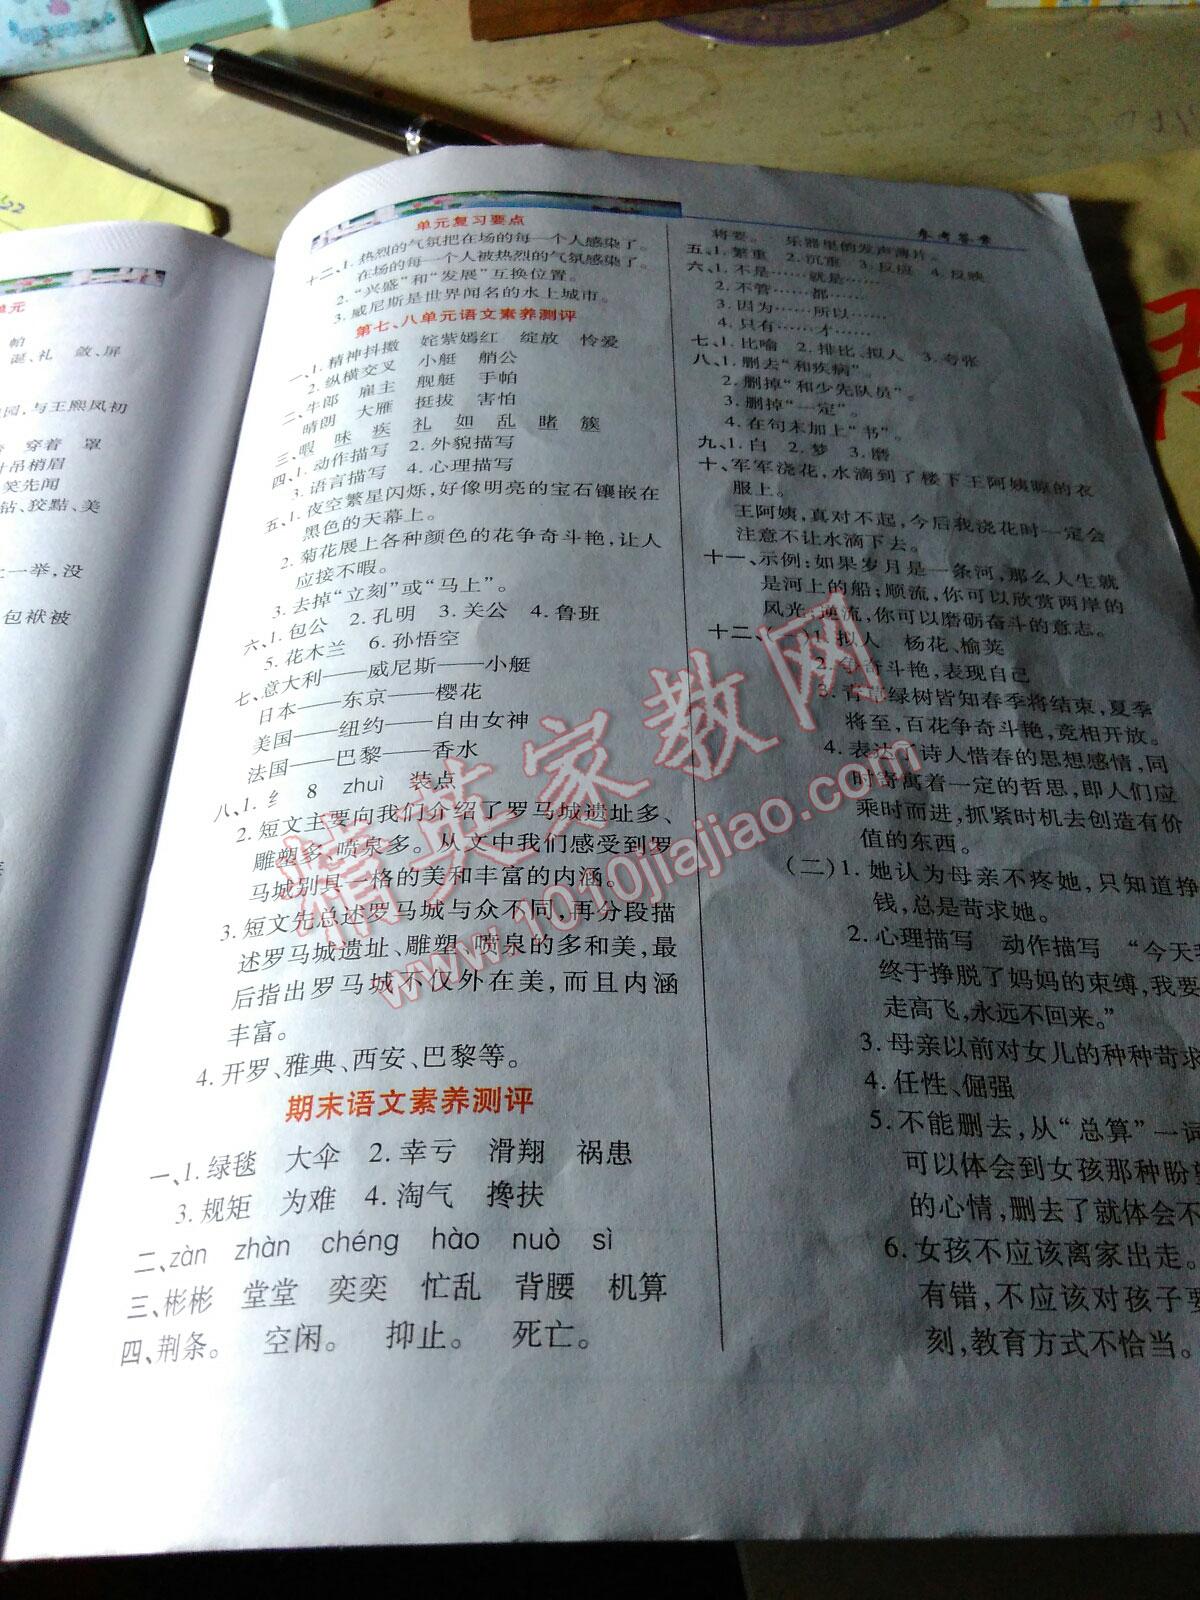 单元
帕
诞、礼 敛、屏
园,与王熙凤初
穿着 罩
叶吊梢眉
笑先闻
钻、狡黠、美
一举,没
包袱被
单元复习要点
十二、1.热烈的气氛把在场的每一个人感染了。
在场的每一个人被热烈的气氛感染了。
2.“兴盛”和“发展”互换位置。
3.威尼斯是世界闻名的水上城市。
第七、八单元语文素养测评
一、1.精神抖擞 姹紫嫣红 绽放 怜爱
2.纵横交叉 小艇 艄公
二、牛郎 雇主 舰艇 手帕
晴朗 大雁 挺拔 害怕
三、暇 味 疾 礼 如 乱 睹 簇
四、1.动作描写 2.外貌描写
3.语言描写 4.心理描写
五、1.夜空繁星闪烁,好像明亮的宝石镶嵌在
黑色的天幕上。
2.菊花展上各种颜色的花争奇斗艳,让人
应接不暇。
3.去掉“立刻”或“马上”。
六、1.包公 2.孔明 3.关公 4.鲁班
5.花木兰 6.孙悟空
七、意大利——威尼斯——小艇
日本——东京——樱花
美国——纽约——自由女神
法国——巴黎——香水
八、1.纟 8 zhuì 装点
2.短文主要向我们介绍了罗马城遗址多、
雕塑多、喷泉多。从文中我们感受到罗
马城别具一格的美和丰富的内涵。
3.短文先总述罗马城与众不同,再分段描
述罗马城遗址、雕塑、喷泉的多和美,最
后指出罗马城不仅外在美,而且内涵
丰富。
4.开罗、雅典、西安、巴黎等。
期末语文素养测评
一、1.绿毯 大伞 2.幸亏 滑翔 祸患
3.规矩 为难 4.淘气 搀扶
二、zàn zhàn chéng hào nuò sì
三、彬彬 堂堂 奕奕 忙乱 背腰 机算
四、荆条。 空闲。 抑止。 死亡。
参考答案
将要。 乐器里的发声薄片。
五、1.繁重 2.沉重 3.反应 4.反映
六、1.不是……就是……
2.不管……都……
3.因为……所以……
4.只有……才……
七、1.比喻 2.排比、拟人 3.夸张
八、1.删去“和疾病”。
2.删掉“和少先队员”。
3.删掉“一定”。
4.在句末加上“书”。
九、1.白 2.梦 3.磨
十、军军浇花,水滴到了楼下王阿姨晾的衣
服上。
王阿姨,真对不起,今后我浇花时一定会
注意不让水滴下去。
十一、示例:如果岁月是一条河,那么人生就
是河上的船;顺流,你可以欣赏两岸的
风光;逆流,你可以磨砺奋斗的意志。
十二、(一)1.拟人 杨花、榆荚
2.争奇斗艳,表现自己
3.青草绿树皆知春季将结束,夏季
将至,百花争奇斗艳,竞相开放。
4.表达了诗人惜春的思想感情,同
时寄寓着一定的哲思,即人们应
乘时而进,抓紧时机去创造有价
值的东西。
(二)1.她认为母亲不疼她,只知道挣
钱,总是苛求她。
2.心理描写 动作描写 “今天我
终于挣脱了妈妈的束缚,我要
走高飞,永远不回来。”
3.母亲以前对女儿的种种苛求
4.任性、倔强
5.不能删去,从“总算”一词
可以体会到女孩那种盼望
的心情,删去了就体会不
6.女孩不应该离家出走。
有错,不应该对孩子要
刻,教育方式不恰当。
精英家教网
www.1010jiajiao.com